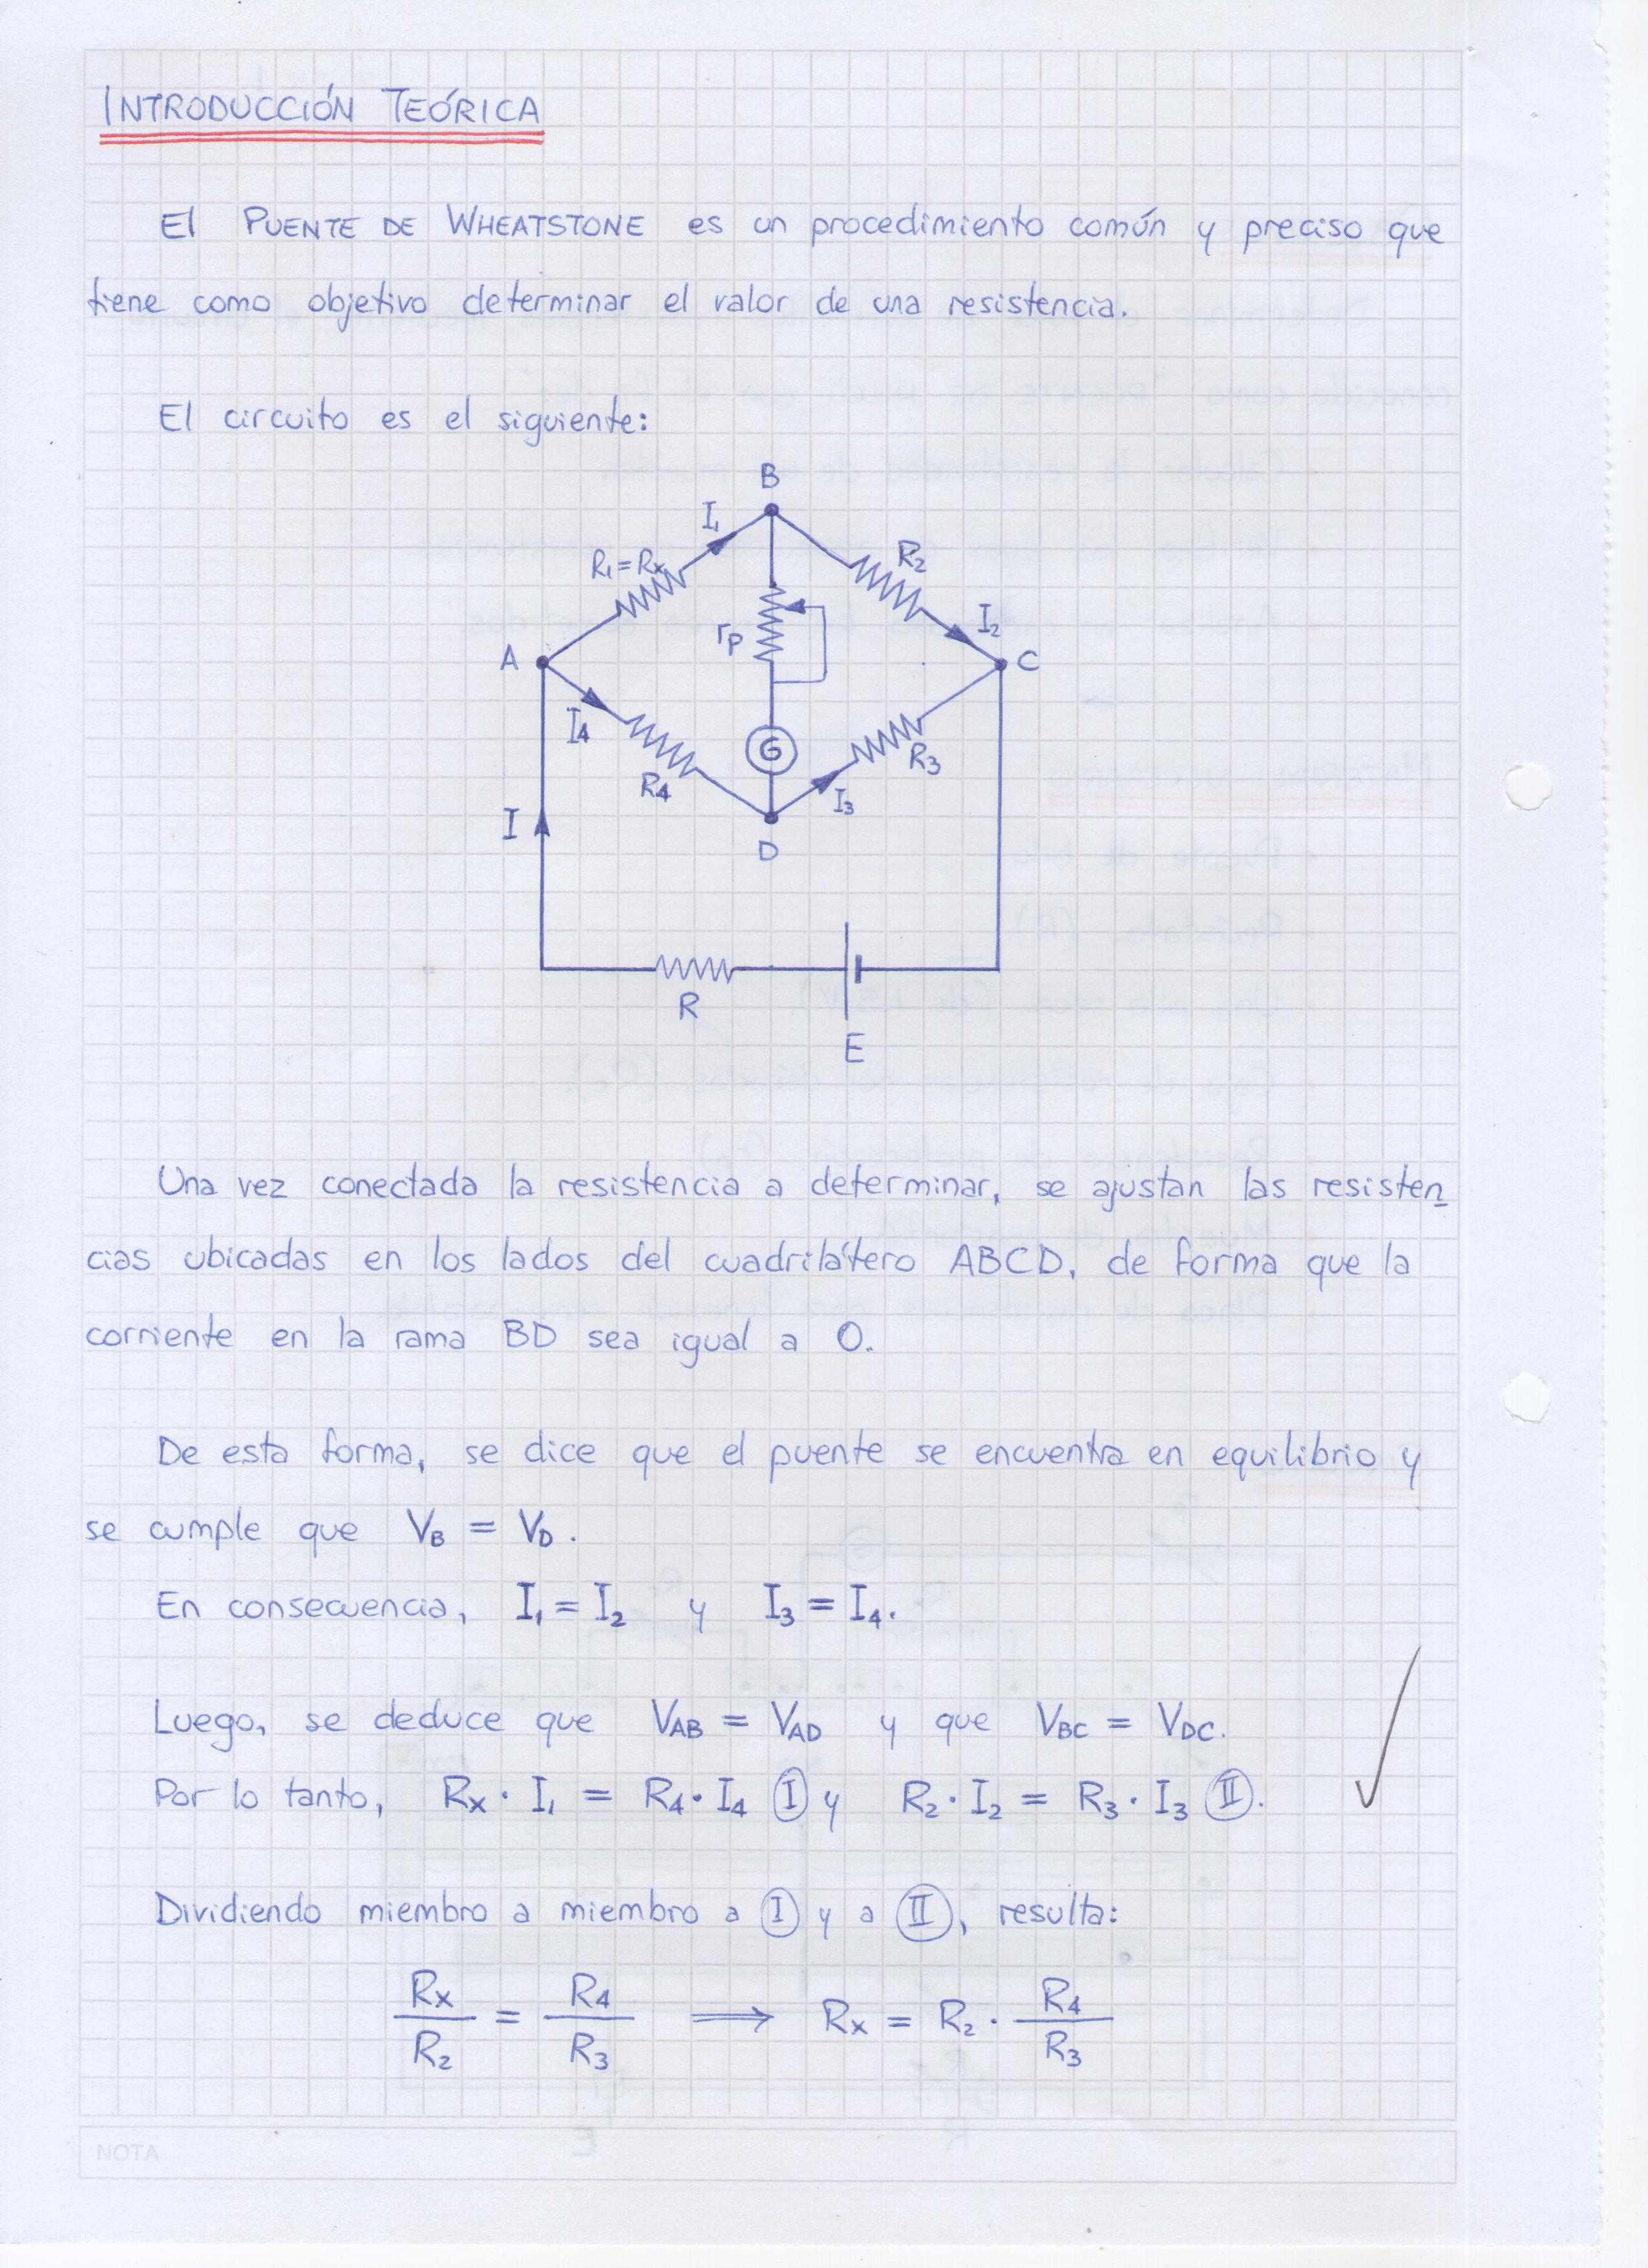 INTRODUCCIÓN TEÓRICA
El PUENTE DE WHEATSTONE es un procedimiento común y preciso que
tiene como objetivo determinar el valor de una resistencia.
El circuito es el siguiente:
B
I₁
R₁=Rx
R₂
rp
I₂
A
C
I₄
G
R₃
R₄
I₃
I
D
R
E
Una vez conectada la resistencia a determinar, se ajustan las resisten
cias ubicadas en los lados del cuadrilátero ABCD, de forma que la
corriente en la rama BD sea igual a 0.
De esta forma, se dice que el puente se encuentra en equilibrio y
se cumple que VB = VD.
En consecuencia, I₁ = I₂ y I₃ = I₄.
Luego, se deduce que VAB = VAD y que VBC = VDC.
Por lo tanto, Rx · I₁ = R₄ · I₄ Ⓘ y R₂ · I₂ = R₃ · I₃ (II).
Dividiendo miembro a miembro a Ⓘ y a (II), resulta:
Rx/R₂ = R₄/R₃ ⟹ Rx = R₂ · R₄/R₃